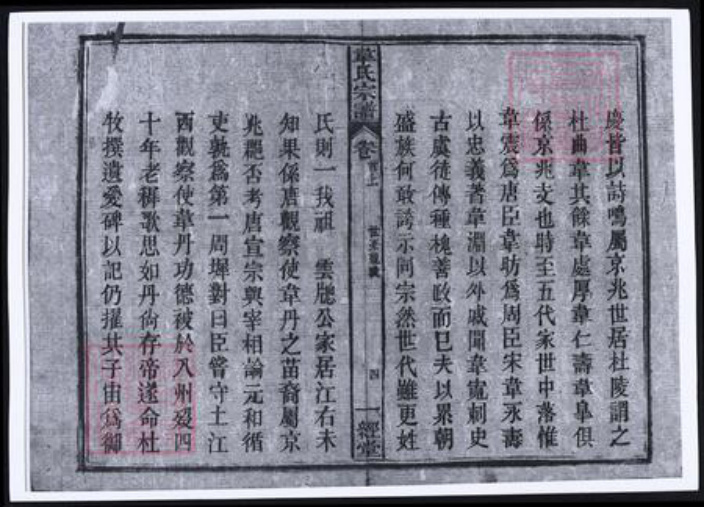 慶皆以詩鳴屬京兆世居杜陵謂之
杜曲韋其餘韋處厚韋仁壽韋臯俱
係京兆支也時至五代家世中落惟
韋震爲唐臣韋昉爲周臣宋韋永壽
以忠義著韋淵以外戚聞韋寬刺史
古虞徒傳種槐善政而已夫以累朝
盛族何敢誇示同宗然世代雖更姓
韋氏宗譜
卷首上
四
一經堂
氏則一我祖 雲牕公家居江右未
知果係唐觀察使韋丹之苗裔屬京
兆罷否考唐宣宗與宰相論元和循
吏孰爲第一周墀對曰臣嘗守土江
西觀察使韋丹功德被於八州歿四
十年老稚歌思如丹尙存帝遂命杜
牧撰遺愛碑以記仍擢其子宙爲御